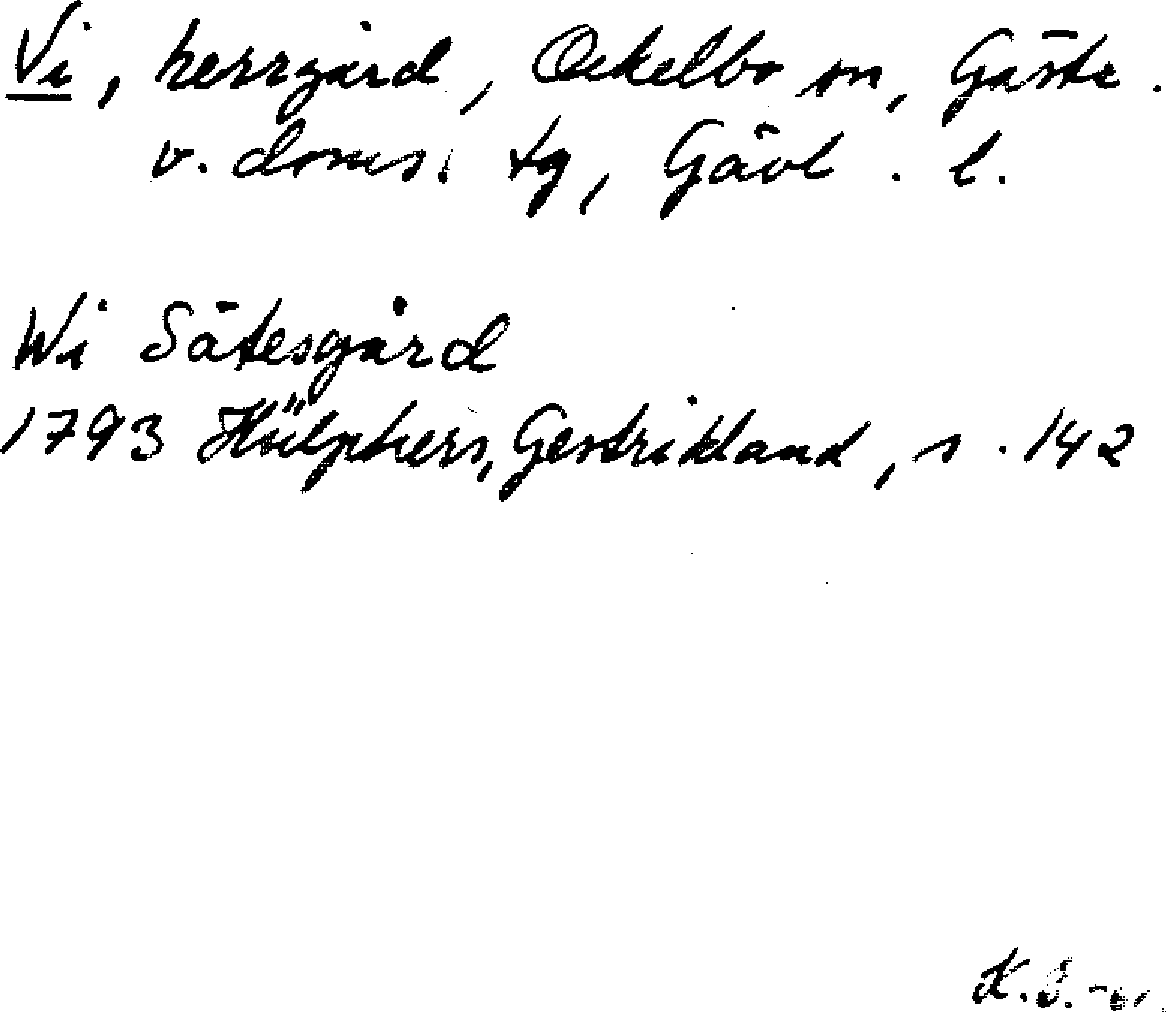 Vi, herrgård, Ockelbo sn, Gästr.
v. doms. tg, Gävl. l.
Wi Sätesgård
1793 Hülphers, Gestrikland, s. 142
K.B.